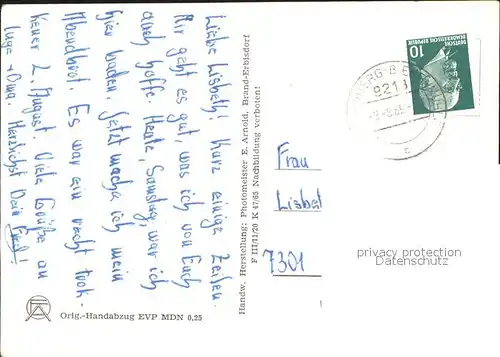 Liebe Lisbeth! Kurz einige Zeilen.
Mir geht es gut, was ich von Euch
auch hoffe. Heute, Samstag, war ich
hier baden. Jetzt mache ich mein
Abendbrot. Es war ein recht trok-
kener 2. August. Viele Grüße an
Inge + Oma. Herzlichst Dein
Orig.-Handabzug EVP MDN 0,25
Handw. Herstellung: Photomeister E. Arnold, Brand-Erbisdorf
F III/11/20 K 47/65 Nachbildung verboten!
10
DEUTSCHE
DEMOKRATISCHE REPUBLIK
9211
c
Frau
Lisbet
7301
privacy protection
Datenschutz